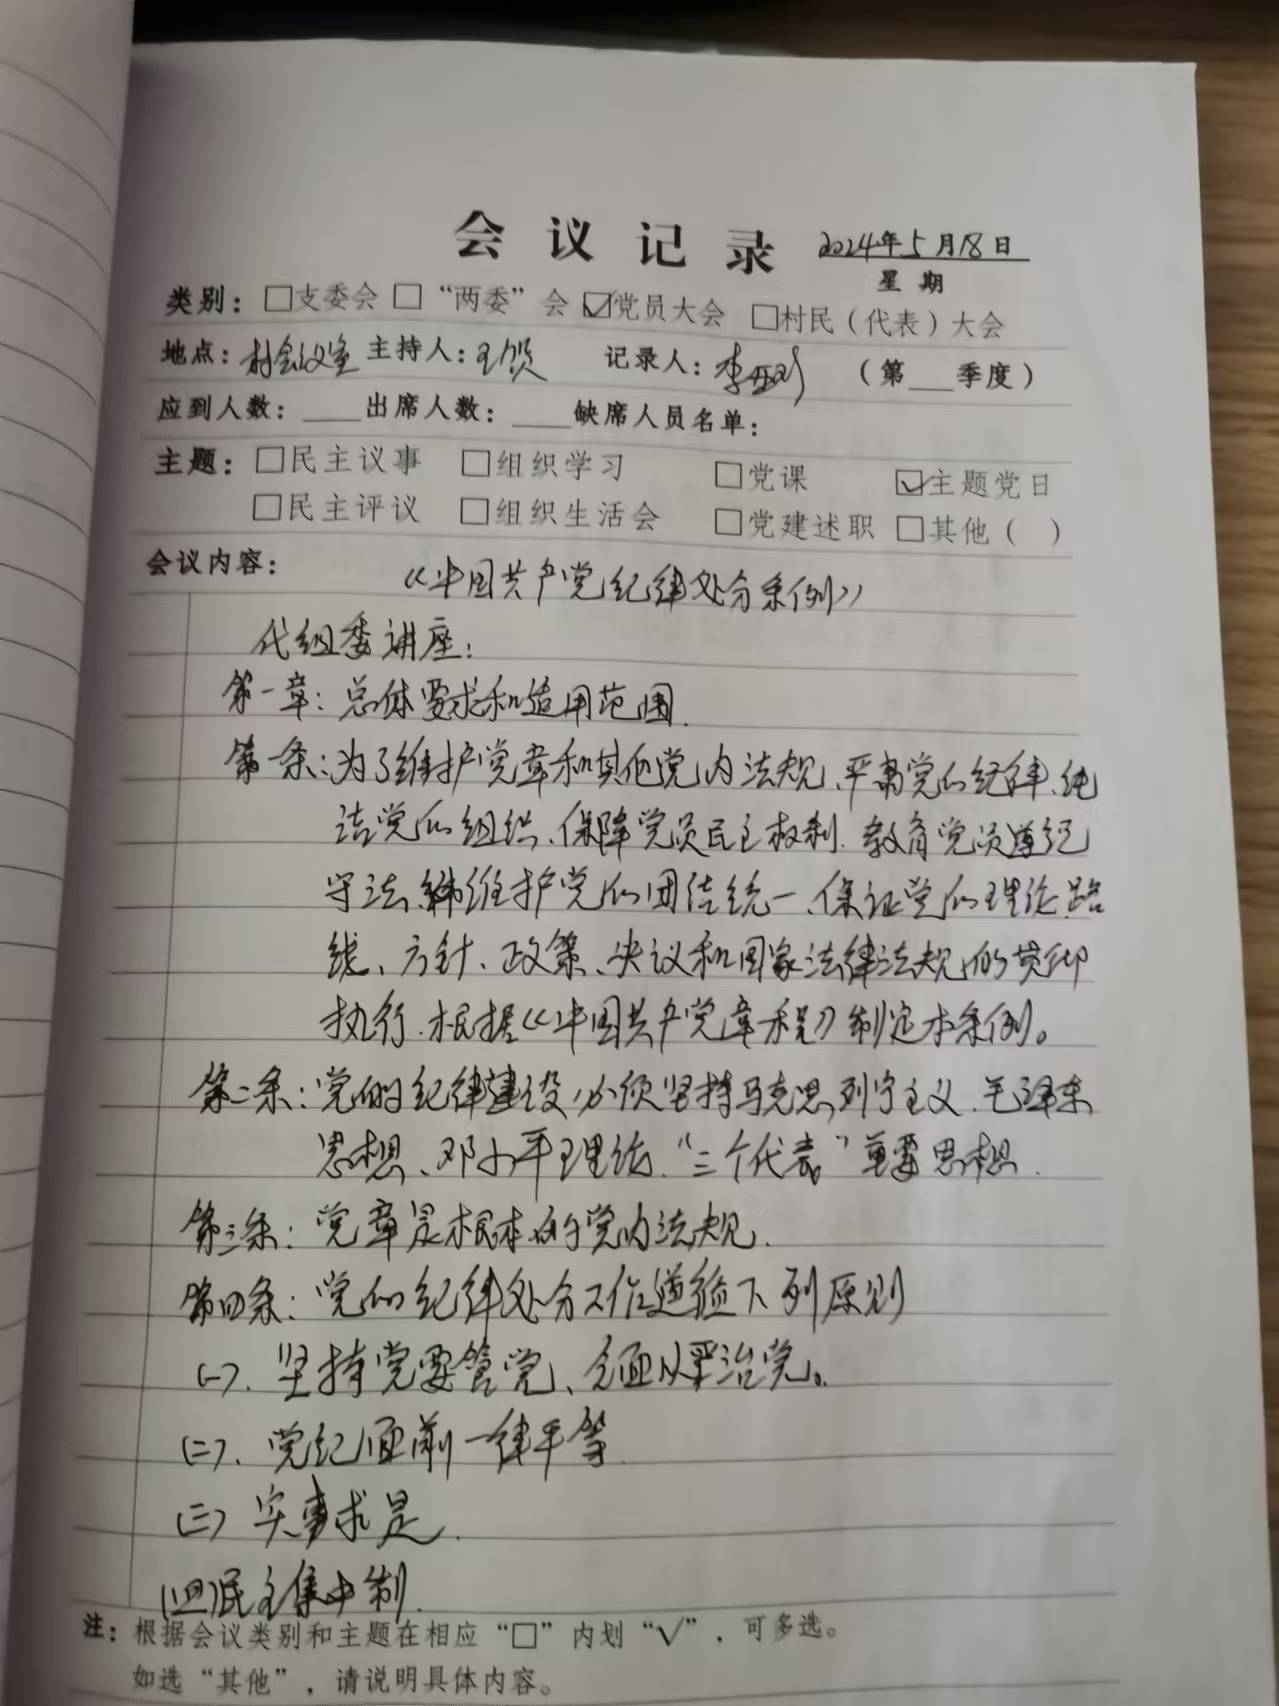 会议记录 2024年5月18日
星期
类别：□支委会 □“两委”会 ☑党员大会 □村民（代表）大会
地点：村会议室 主持人：王贺 记录人：李亚刚 （第___季度）
应到人数：____出席人数：____缺席人员名单：
主题：□民主议事 □组织学习 □党课 ☑主题党日
□民主评议 □组织生活会 □党建述职 □其他（ ）
会议内容：
《中国共产党纪律处分条例》
代组委讲座：
第一章：总体要求和适用范围.
第一条：为了维护党章和其他党内法规、严肃党的纪律、纯
洁党的组织、保障党员民主权利.教育党员遵纪
守法、维护党的团结统一、保证党的理论路
线、方针、政策、决议和国家法律法规的贯彻
执行.根据《中国共产党章程》制定本条例。
第二条：党的纪律建设，必须坚持马克思列宁主义.毛泽东
思想、邓小平理论.“三个代表”重要思想.
第三条：党章是根本的党内法规.
第四条：党的纪律处分工作遵循下列原则
(一).坚持党要管党、全面从严治党。
(二).党纪面前一律平等.
(三)实事求是.
(四)民主集中制.
注：根据会议类别和主题在相应“□”内划“√”，可多选。
如选“其他”，请说明具体内容。